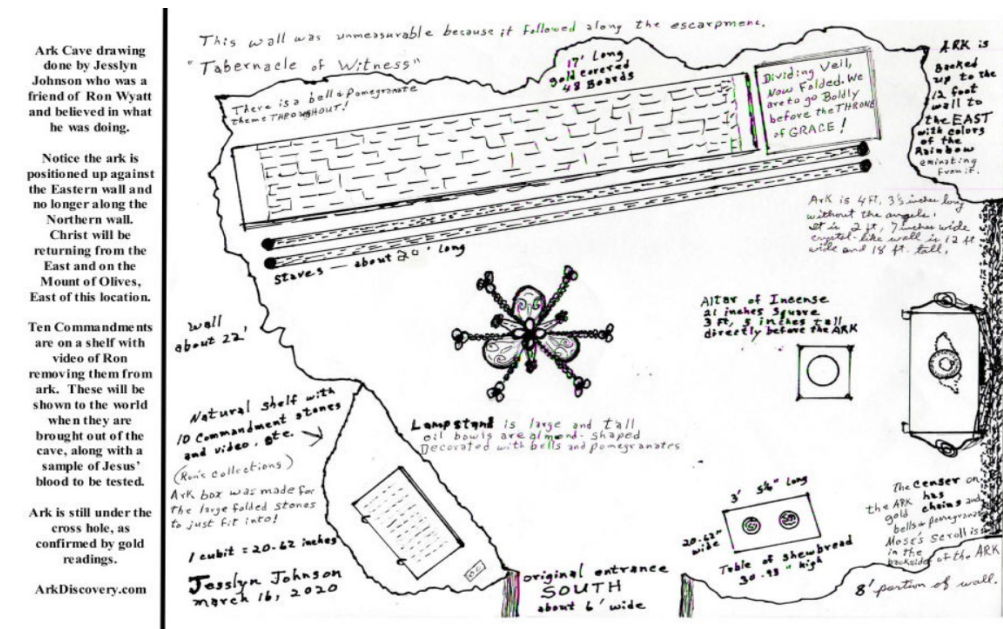 Ark Cave drawing
done by Jesslyn
Johnson who was a
friend of Ron Wyatt
and believed in what
he was doing.
Notice the ark is
positioned up against
the Eastern wall and
no longer along the
Northern wall.
Christ will be
returning from the
East and on the
Mount of Olives,
East of this location.
Ten Commandments
are on a shelf with
video of Ron
removing them from
ark. These will be
shown to the world
when they are
brought out of the
cave, along with a
sample of Jesus'
blood to be tested.
Ark is still under the
cross hole, as
confirmed by gold
readings.
ArkDiscovery.com
This wall was unmeasurable because it followed along the escarpment.
"Tabernacle of Witness"
There is a bell & Pomegranate
theme THROUGHOUT!
17' Long
gold covered
48 Boards
Dividing Veil,
Now Folded. We
are to go Boldly
before the THRONE
of GRACE!
ARK is
Backed
up to the
12 foot
wall to
the EAST
with colors
of the
Rainbow
eminating
from it.
Ark is 4 Ft. 3½ inches long
without the angels.
It is 2 ft, 7 inches wide
crystal-like wall is 12 ft
wide and 18 ft. tall.
Staves — about 20' long
Wall
about 22'
Altar of Incense
21 inches Square
3 Ft, 5 inches tall
directly before the ARK
Natural Shelf with
10 Commandment stones
and video, etc.
(Ron's collections)
Ark box was made for
the large folded stones
to just fit into!
1 cubit = 20.62 inches
Jesslyn Johnson
march 16, 2020
Lampstand is large and tall
oil bowls are almond-shaped
Decorated with bells and pomegranates
3' 5¼" Long
20.62"
wide
Table of Shewbread
30.93" high
original entrance
SOUTH
about 6' wide
The Censer on
the ARK has
gold chains and
bells & pomegranates
Mose's Scroll is
in the
backside of the ARK
8' portion of wall.